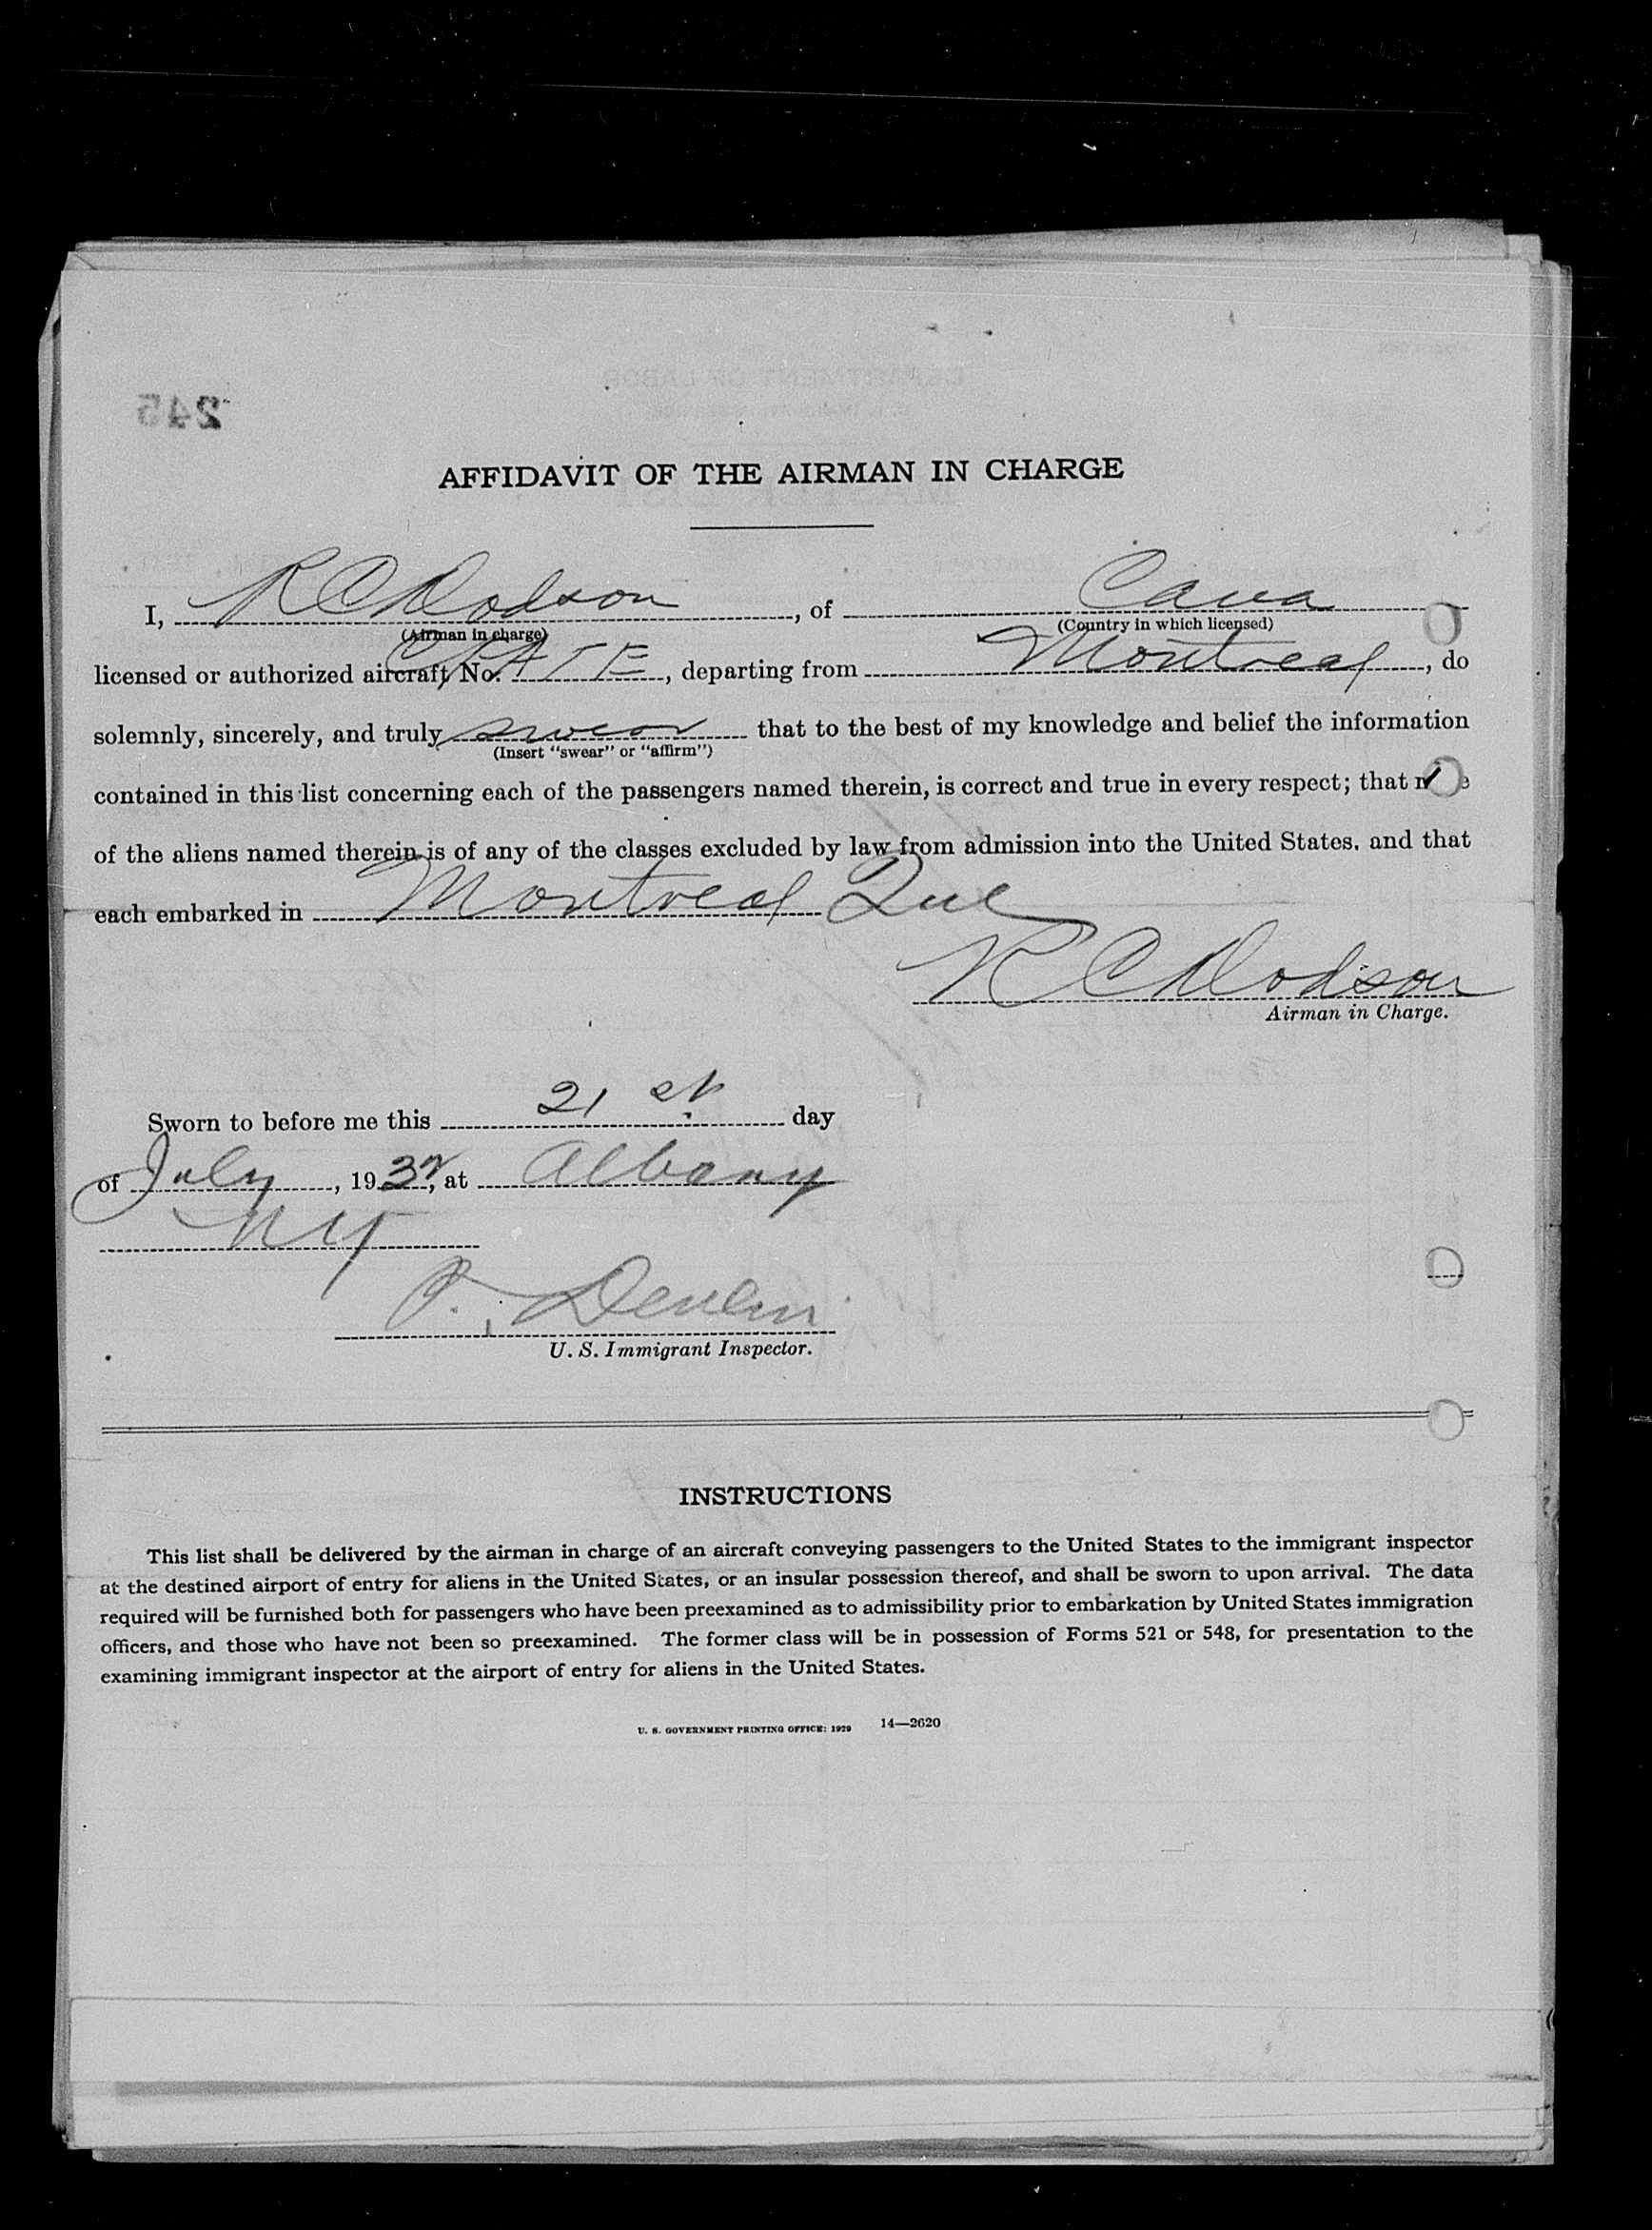 245
AFFIDAVIT OF THE AIRMAN IN CHARGE
I, R C Dodson, of Cana
(Airman in charge) (Country in which licensed)
licensed or authorized aircraft, No. CFATE, departing from Montreal, do
solemnly, sincerely, and truly swear that to the best of my knowledge and belief the information
(Insert "swear" or "affirm")
contained in this list concerning each of the passengers named therein, is correct and true in every respect; that
of the aliens named therein is of any of the classes excluded by law from admission into the United States. and that
each embarked in Montreal Que
R C Dodson
Airman in Charge.
Sworn to before me this 21 st day
of July, 1932, at Albany
NY
P. Devlin
U. S. Immigrant Inspector.
INSTRUCTIONS
This list shall be delivered by the airman in charge of an aircraft conveying passengers to the United States to the immigrant inspector
at the destined airport of entry for aliens in the United States, or an insular possession thereof, and shall be sworn to upon arrival. The data
required will be furnished both for passengers who have been preexamined as to admissibility prior to embarkation by United States immigration
officers, and those who have not been so preexamined. The former class will be in possession of Forms 521 or 548, for presentation to the
examining immigrant inspector at the airport of entry for aliens in the United States.
U. S. GOVERNMENT PRINTING OFFICE: 1929 14—2620